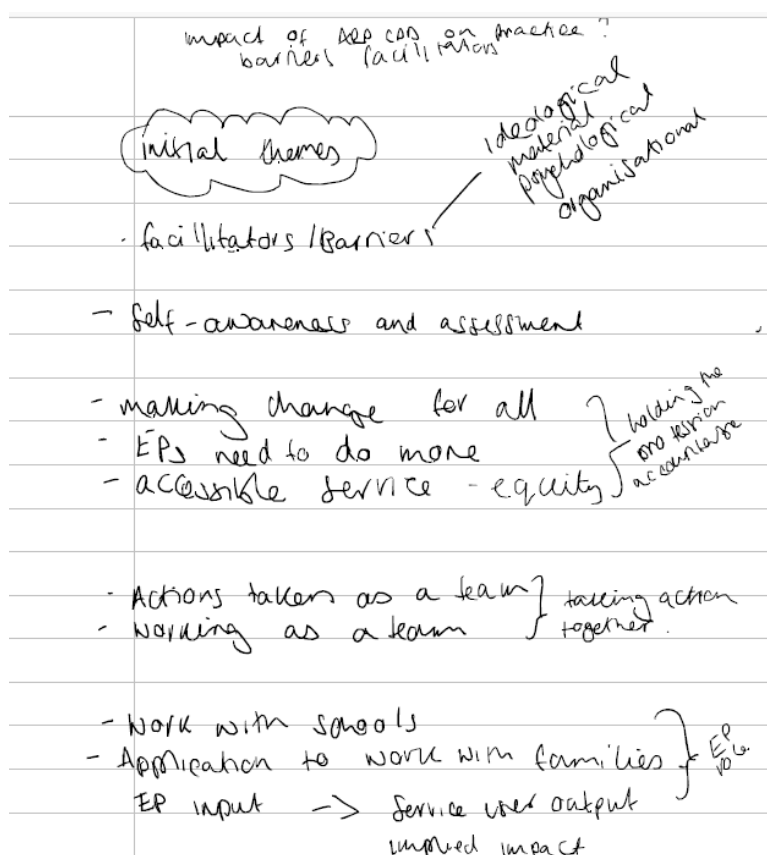 impact of ARP CPD on practice?
barriers facilitators
initial themes
ideological
material
psychological
organisational
- facilitators / Barriers
- Self-awareness and assessment
- making change for all
- EPs need to do more
- accessible service - equity
holding the
profession
accountable
- Actions taken as a team
- working as a team
taking action
together.
- Work with schools
- Application to work with families
EP
EP input -> Service user output
implied impact